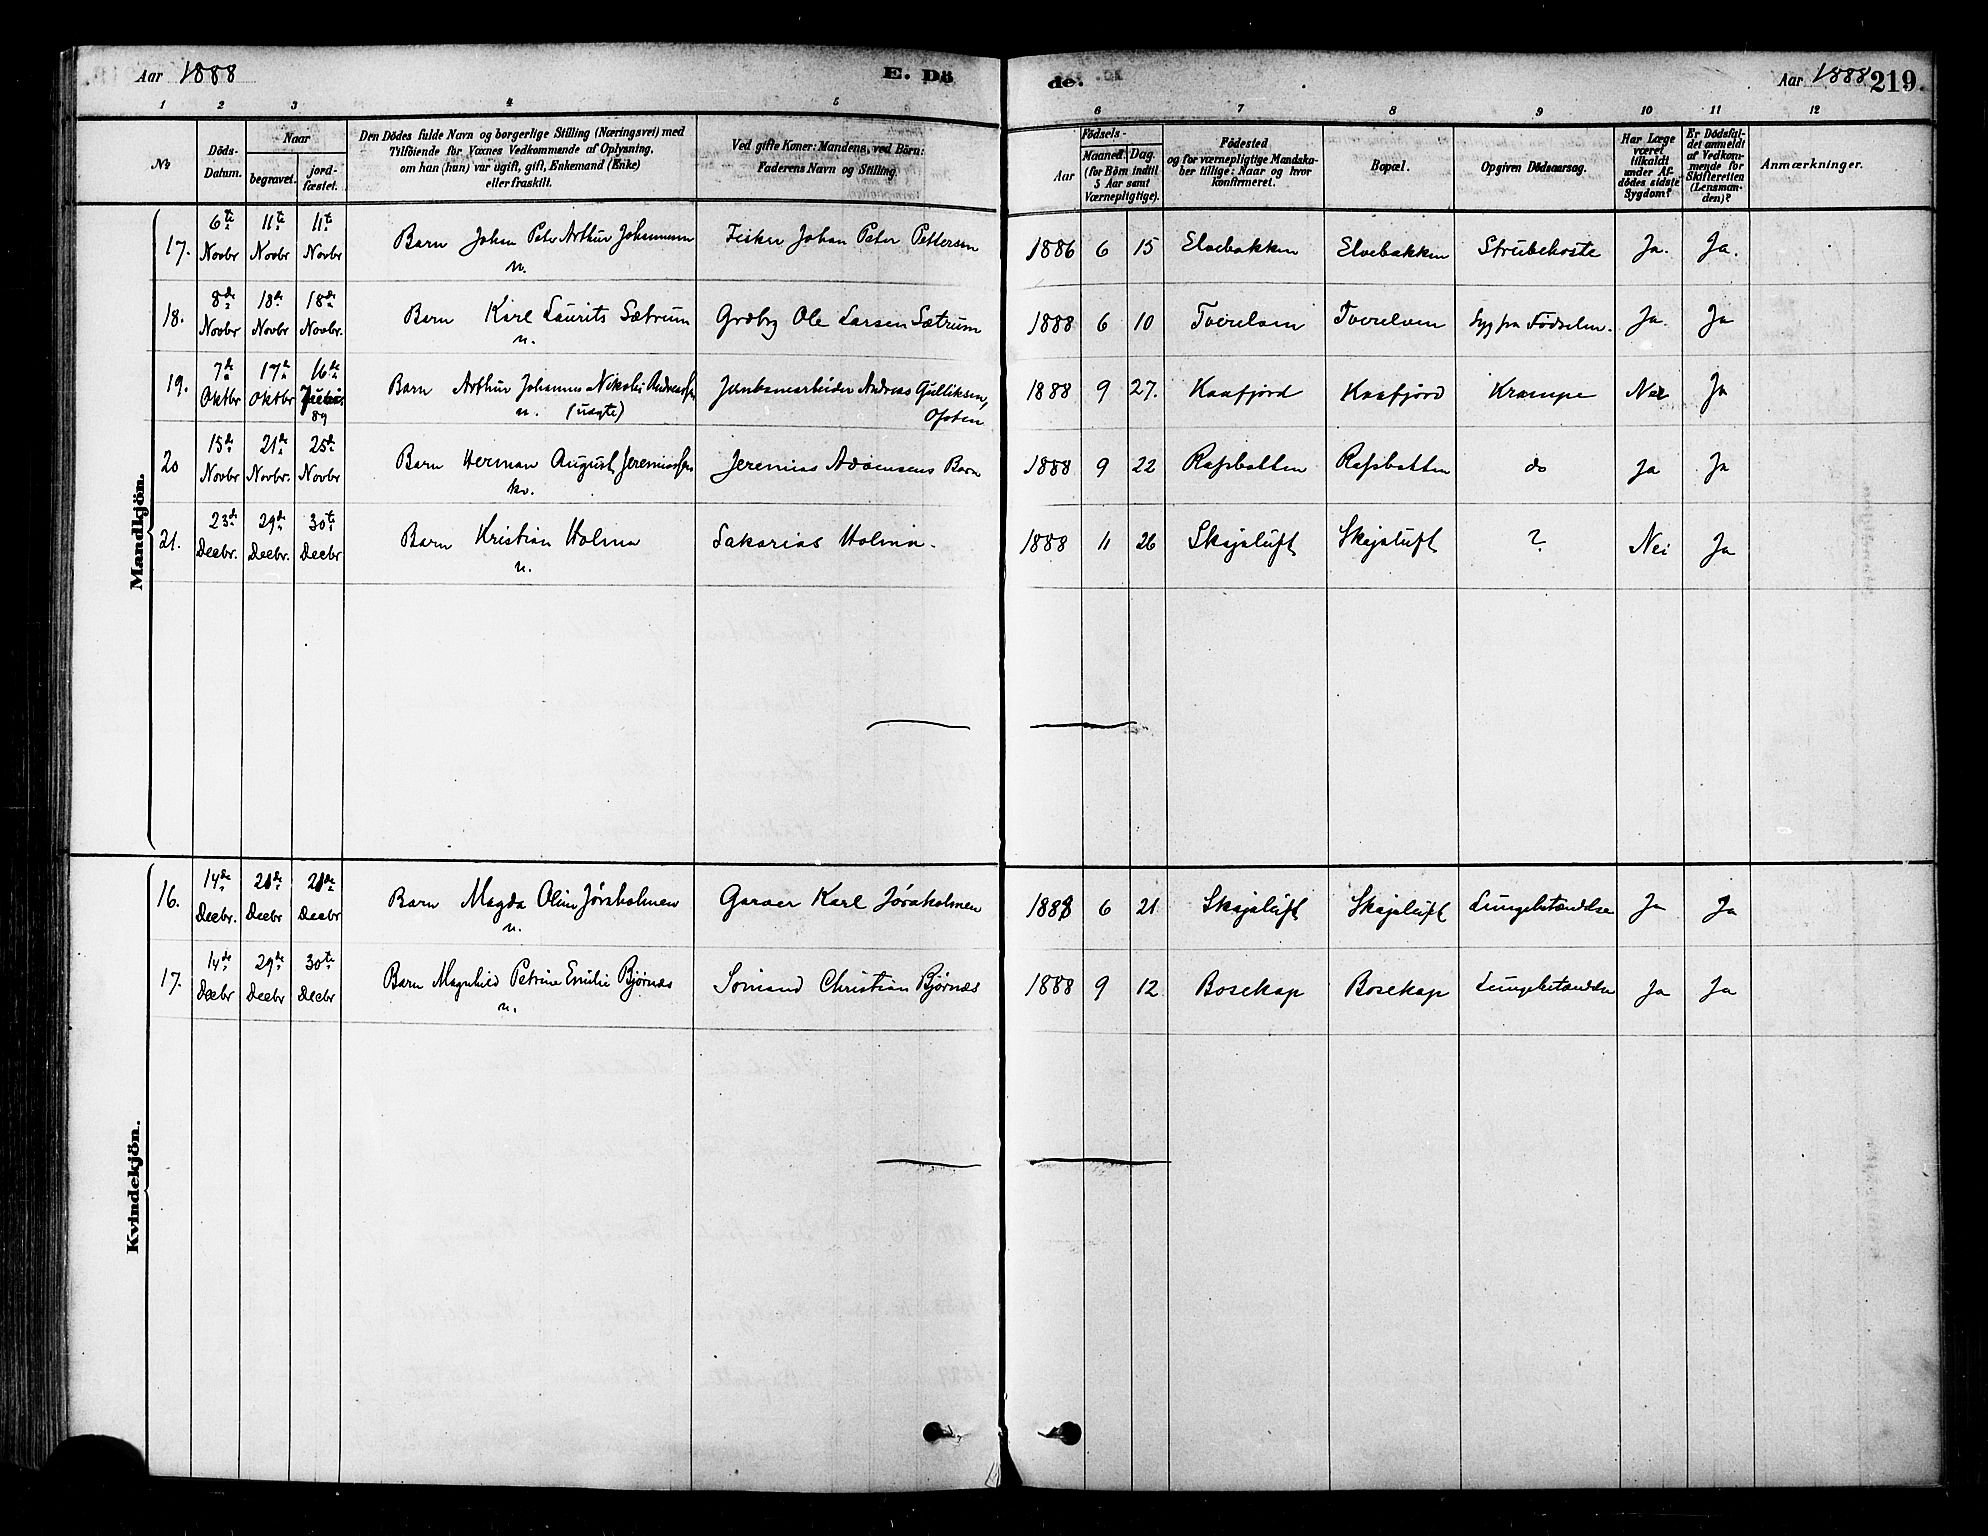 Aar 1888
E. Dö
de.
Aar 1888
219.
1 2 3 4 5 6 7 8 9 10 11 12
No
Döds-Datum.
Naar
begravet.
jord-fæstet.
Den Dödes fulde Navn og borgerlige Stilling (Næringsvei) med
Tilföiende för Voxnes Vedkommende af Oplysning,
om han (hun) var ugift, gift, Enkemand (Enke)
eller fraskilt.
Ved gifte Koner: Mandens, ved Börn:
Faderens Navn og Stilling.
Födsels-
Aar
Maaned. Dag.
(for Börn indtil
5 Aar samt
Værnepligtige).
Födested
og for værnepligtige Mandska-
ber tillige: Naar og hvor
konfirmeret.
Bopæl.
Opgiven Dödsaarsag.
Har Læge
været
tilkaldt
under Af-
dödes sidste
Sygdom?
Er Dödsfal-
det anmeldt
af Vedkom-
mende for
Skifteretten
(Lensman-
den)?
Anmærkninger.
Mandkjön.
17. 6te Novbr 11te Novbr 11te Novbr Barn Johan Peter Arthur Johannesen Fisker Johan Peter Pettersen 1886 6 15 Elvebakken Elvebakken Strubehoste Ja. Ja.
n.
18. 8de Novbr 18de Novbr 18de Novbr. Barn Karl Laurits Sætrum Grdbg Ole Larsen Sætrum 1888 6 10 Tverelven Tverelven Syg fra Fødselen. Ja. Ja
n.
19. 7de Oktbr 17de Oktbr 16de 89 Barn Arthur Johannes Nikolai Andreassen Andreas Gulliksen, 1888 9 27. Kaafjord Kaafjord Krampe Nei Ja
u. (uægte) Ofoten
20 15de Novbr 21de Novbr. 25de Novbr Barn Herman August Jeremiassen Jeremias Adamsens Barn 1888 9 22 Rafsbotten Rafsbotten do Ja Ja
kv.
21. 23de Decbr. 29de Decbr. 30te Decbr Barn Kristian Holma Sakarias Holma. 1888 11 26 Skajaluft Skajaluft ? Nei Ja
n.
Kvindekjön.
16. 14de Decbr. 21de Decbr 21de Decbr Barn Magda Oline Jørstholmen Garver Karl Jørstholmen 1888 6 21 Skajaluft Skajaluft Lungebetændelse Ja Ja
n.
17. 14de Decbr 29de Decbr 30te Decbr Barn Magnhild Petrine Emilie Bjørnæs Sömand Christian Bjørnæs 1888 9 12 Bosekop Bosekop Lungebetændelse Ja Ja
n.